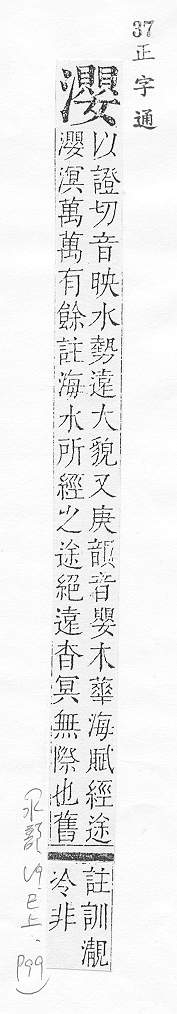 37正字通
瀴
以證切音映水勢遠大貌又庚韻音嬰木華海賦經途
瀴溟萬萬有餘註海水所經之途絕遠杳冥無際也舊
註訓瀙
冷非
(水部
上.
P99)